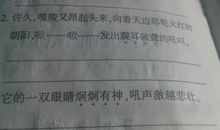 2. 许久,嘎羧又昂起头来,向着天边那轮火红的
朝阳,欧——欧——发出震耳欲聋的吼叫。
它的一双眼睛炯炯有神,吼声激越悲壮。